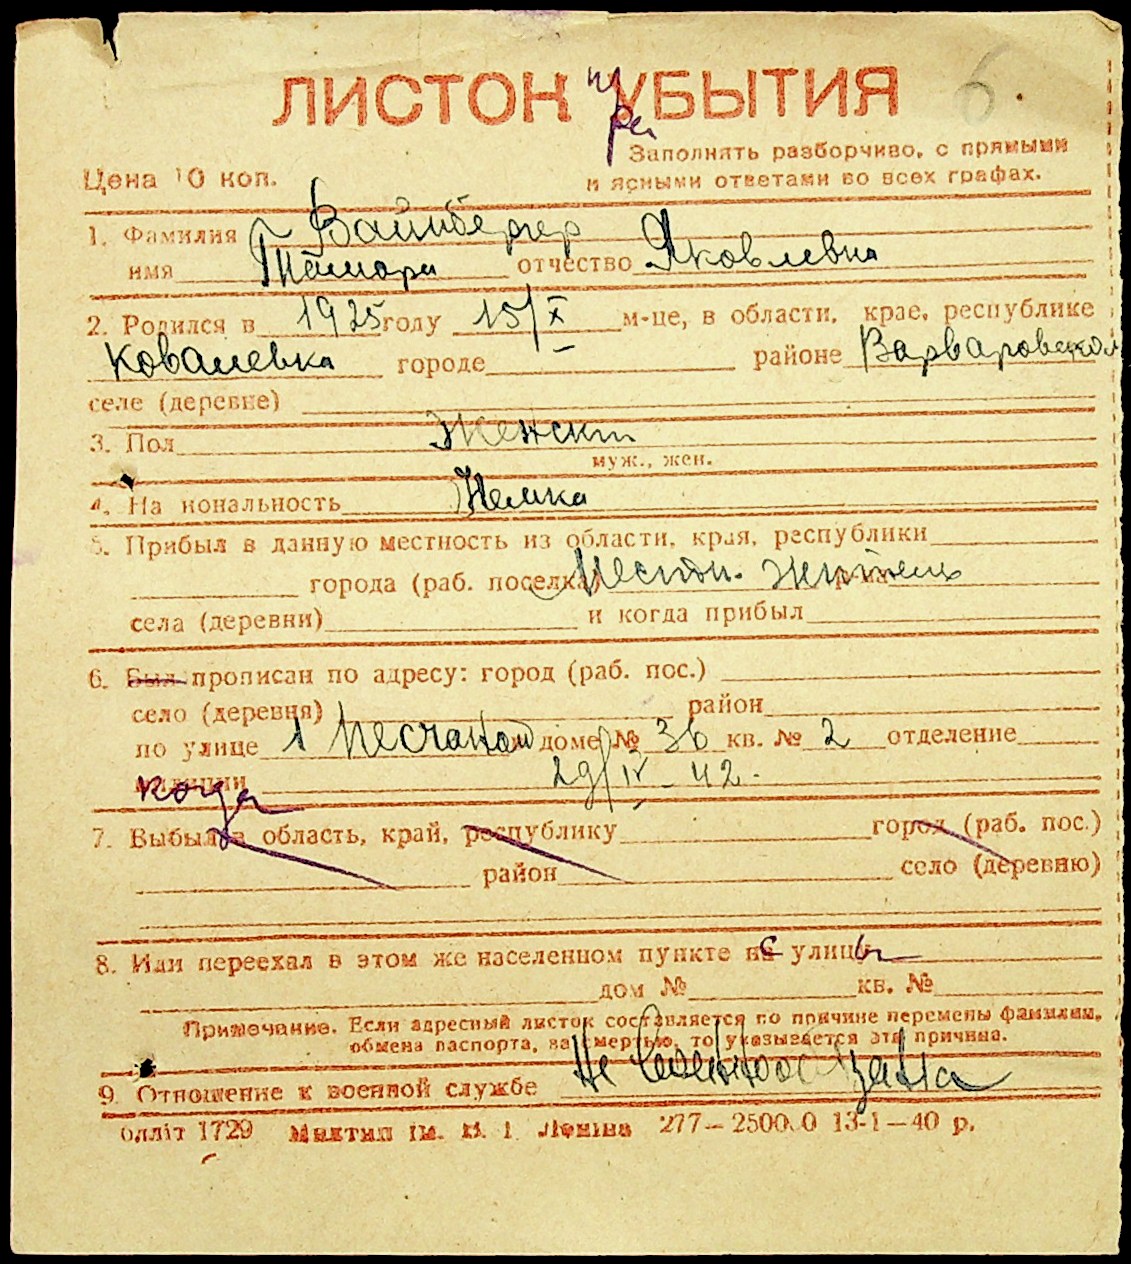 6
ЛИСТОК УБЫТИЯ
при
Заполнять разборчиво, с прямыми
и ясными ответами во всех графах.
Цена 10 коп.
1. Фамилия Вайнбергер
имя Тамара отчество Яковлевна
2. Родился в 1925 году 15/X м-це, в области, крае, республике
Ковалевка городе районе Варваровском
селе (деревне)
3. Пол Женский
муж., жен.
4. На иональность Немка
5. Прибыл в данную местность из области, края, республики
города (раб. поселка) Местн. житель р-на
села (деревни) и когда прибыл
6. Был прописан по адресу: город (раб. пос.)
село (деревня) район
по улице 1 Песчаной доме № 36 кв. № 2 отделение
милиции 29/IV-42.
когда
7. Выбыл в область, край, республику город (раб. пос.)
район село (деревню)
8. Или переехал в этом же населенном пункте с улицы
дом № кв. №
Примечание. Если адресный листок составляется по причине перемены фамилии,
обмена паспорта, за смертью, то указывается эта причина.
9. Отношение к военной службе Не военнообязана
олліт 1729 Миктип ім. В. І. Леніна 277—250000 13-1—40 р.